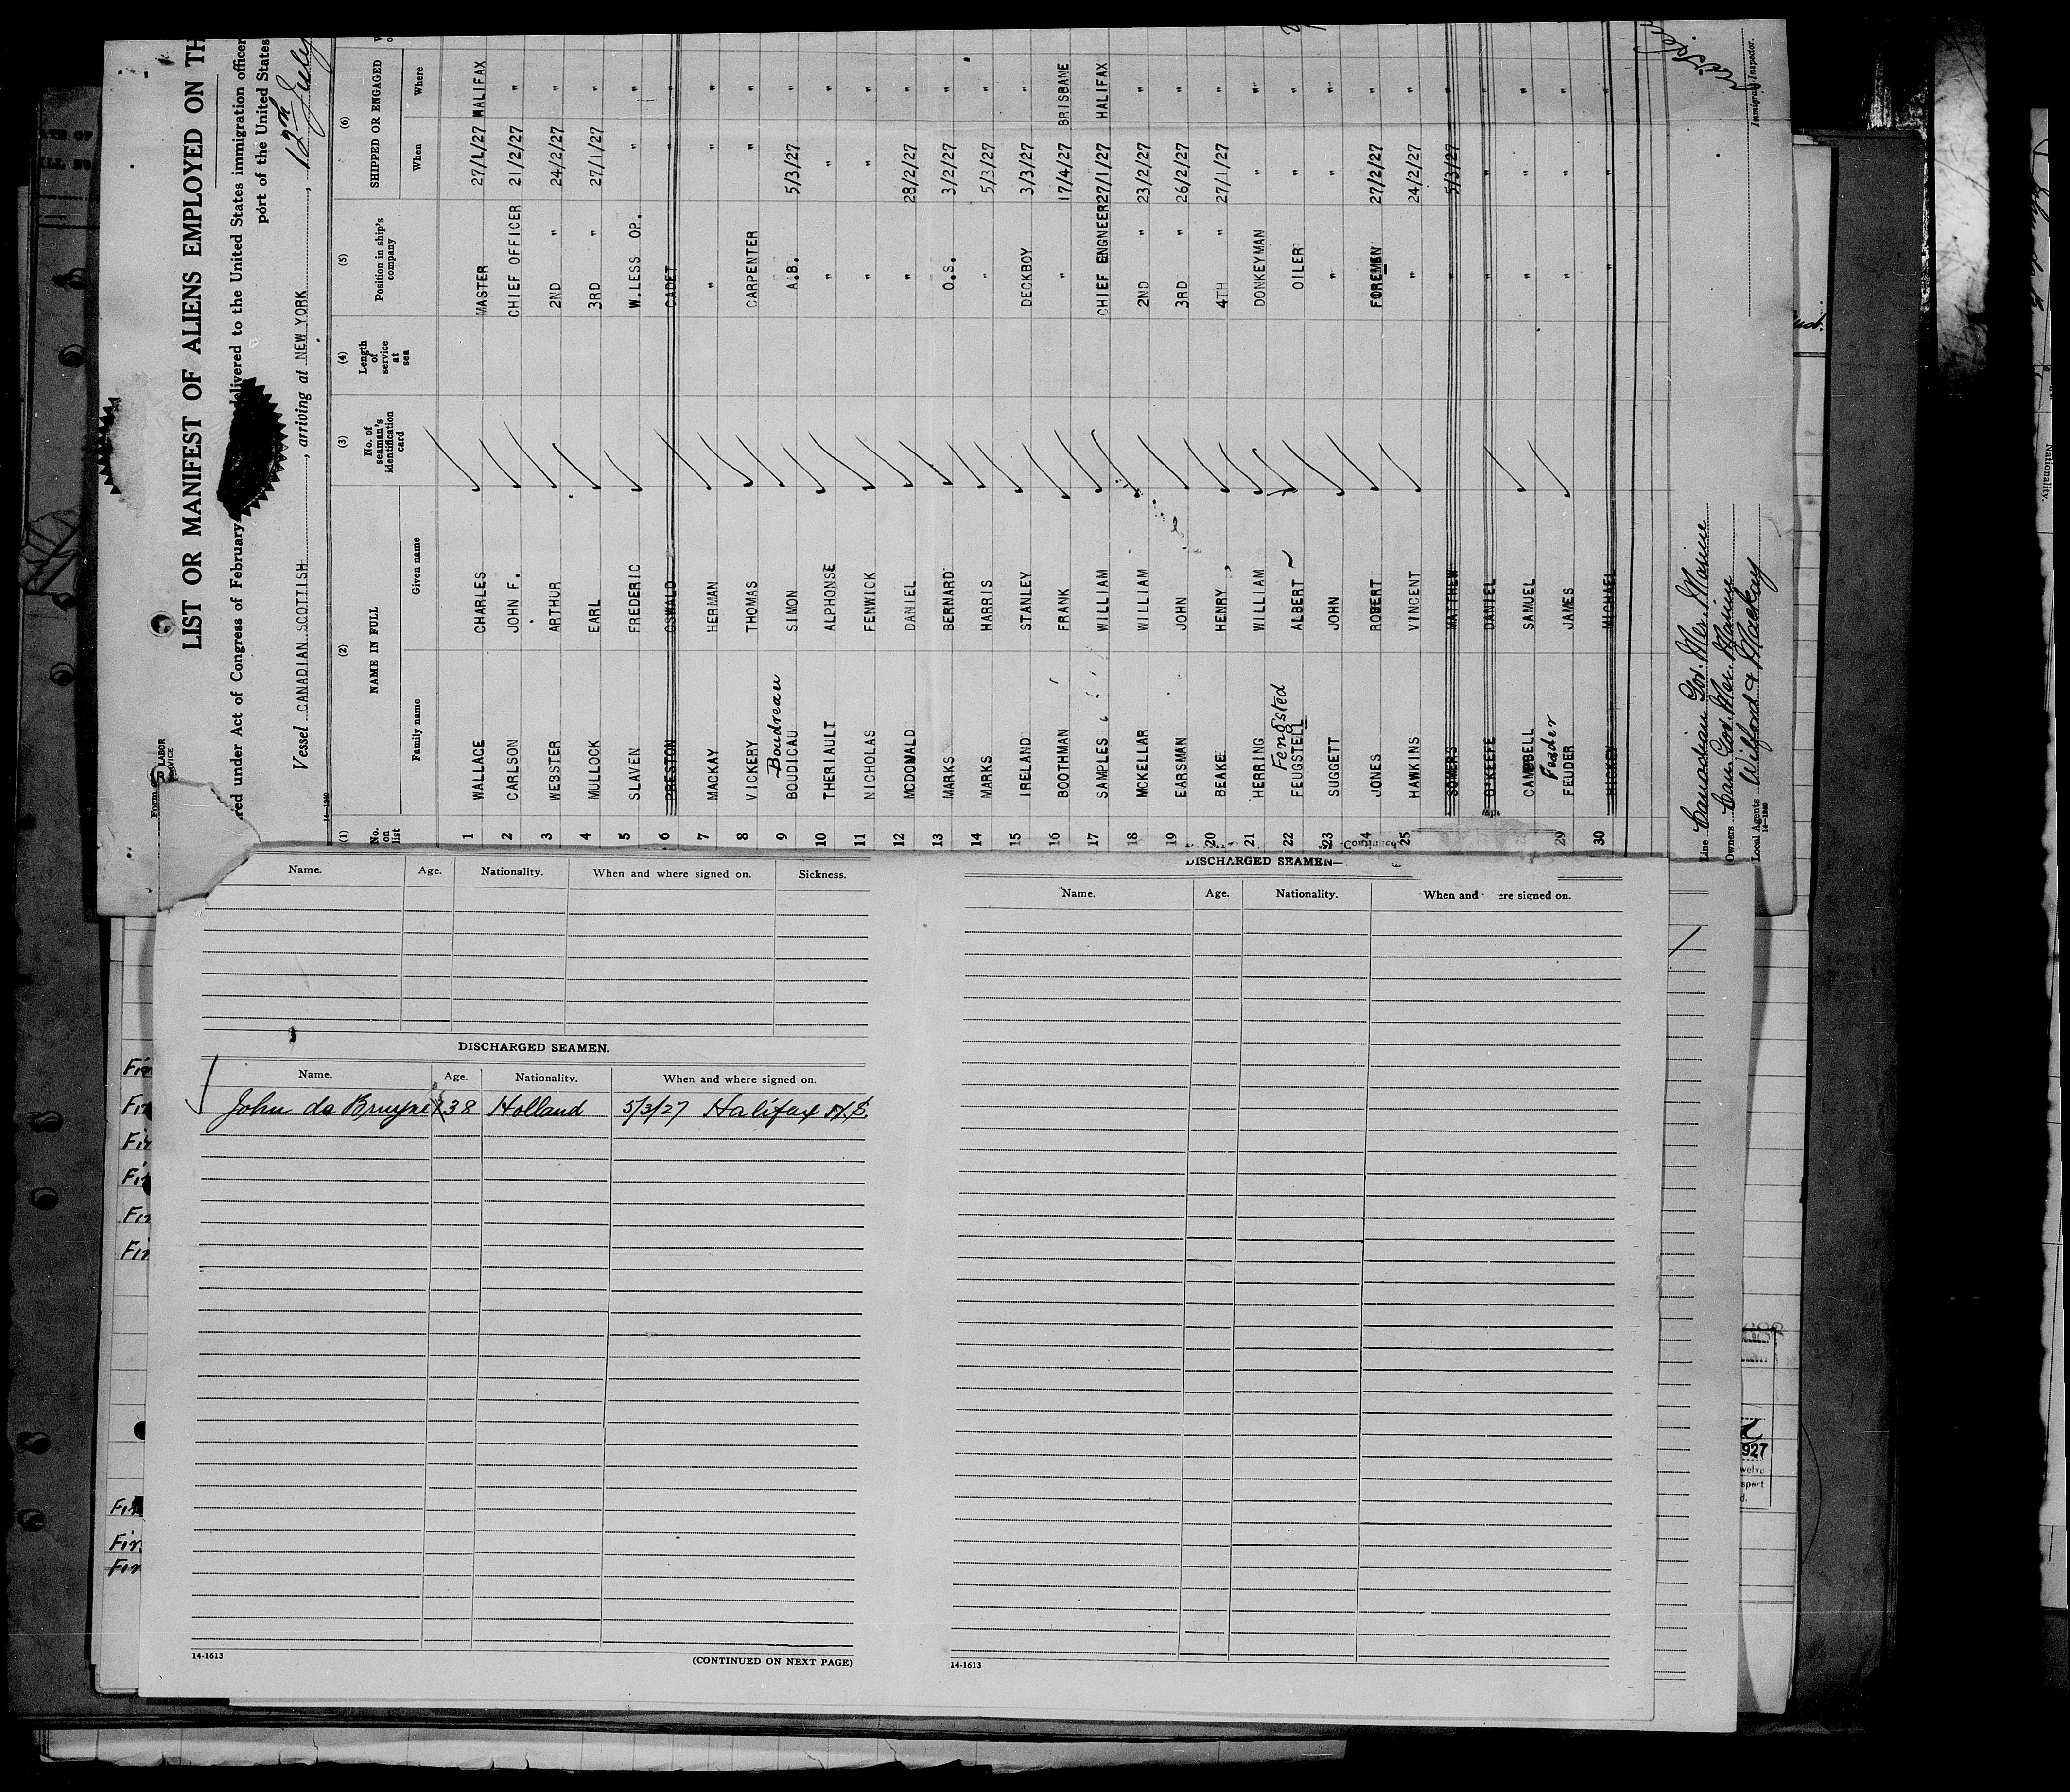 LIST OR MANIFEST OF ALIENS EMPLOYED ON TH
red under Act of Congress of February delivered to the United States immigration officer
port of the United States
Vessel CANADIAN SCOTTISH, arriving at NEW YORK, 12th July
(1) (2) (3) (4) (5) (6)
No. on list NAME IN FULL No. of seaman's identification card Length of service at sea Position in ship's company SHIPPED OR ENGAGED
Family name Given name When Where
1 WALLACE CHARLES MASTER 27/1/27 HALIFAX
2 CARLSON JOHN F. CHIEF OFFICER 21/2/27 "
3 WEBSTER ARTHUR 2ND " 24/2/27 "
4 MULLOCK EARL 3RD " 27/1/27 "
5 SLAVEN FREDERIC W.LESS OP. " "
6 PRESTON OSWALD CADET " "
7 MACKAY HERMAN " " "
8 VICKERY THOMAS CARPENTER " "
Boudreau
9 BOUDICAU SIMON A.B. 5/3/27 "
10 THERIAULT ALPHONSE " " "
11 NICHOLAS FENWICK " " "
12 MCDONALD DANIEL " 28/2/27 "
13 MARKS BERNARD O.S. 3/2/27 "
14 MARKS HARRIS " 5/3/27 "
15 IRELAND STANLEY DECKBOY 3/3/27 "
16 BOOTHMAN FRANK " 17/4/27 BRISBANE
17 SAMPLES WILLIAM CHIEF ENGNEER 27/1/27 HALIFAX
18 MCKELLAR WILLIAM 2ND " 23/2/27 "
19 EARSMAN JOHN 3RD " 26/2/27 "
20 BEAKE HENRY 4TH " 27/1/27 "
21 HERRING WILLIAM DONKEYMAN " "
Fengsted
22 FEUGSTELL ALBERT OILER " "
23 SUGGETT JOHN " " "
24 JONES ROBERT FOREMEN 27/2/27 "
25 HAWKINS VINCENT " 24/2/27 "
SOMERS MATTHEW " 5/3/27 "
O'KEEFE DANIEL " " "
CAMBBELL SAMUEL " " "
Fader
29 FEUDER JAMES " " "
30 HICKEY MICHAEL " " "
Line Canadian Gov. Mer. Marine
Owners Can. Gov. Mer. Marine
Local Agents Wilford & Mackay
14-1240
Immigrant Inspector.
Name. Age. Nationality. When and where signed on. Sickness.
DISCHARGED SEAMEN.
Name. Age. Nationality. When and where signed on.
John de Bruyne 38 Holland 5/3/27 Halifax N.S.
14-1613
(CONTINUED ON NEXT PAGE)
DISCHARGED SEAMEN—
Name. Age. Nationality. When and ere signed on.
14-1613
Nationality.
927